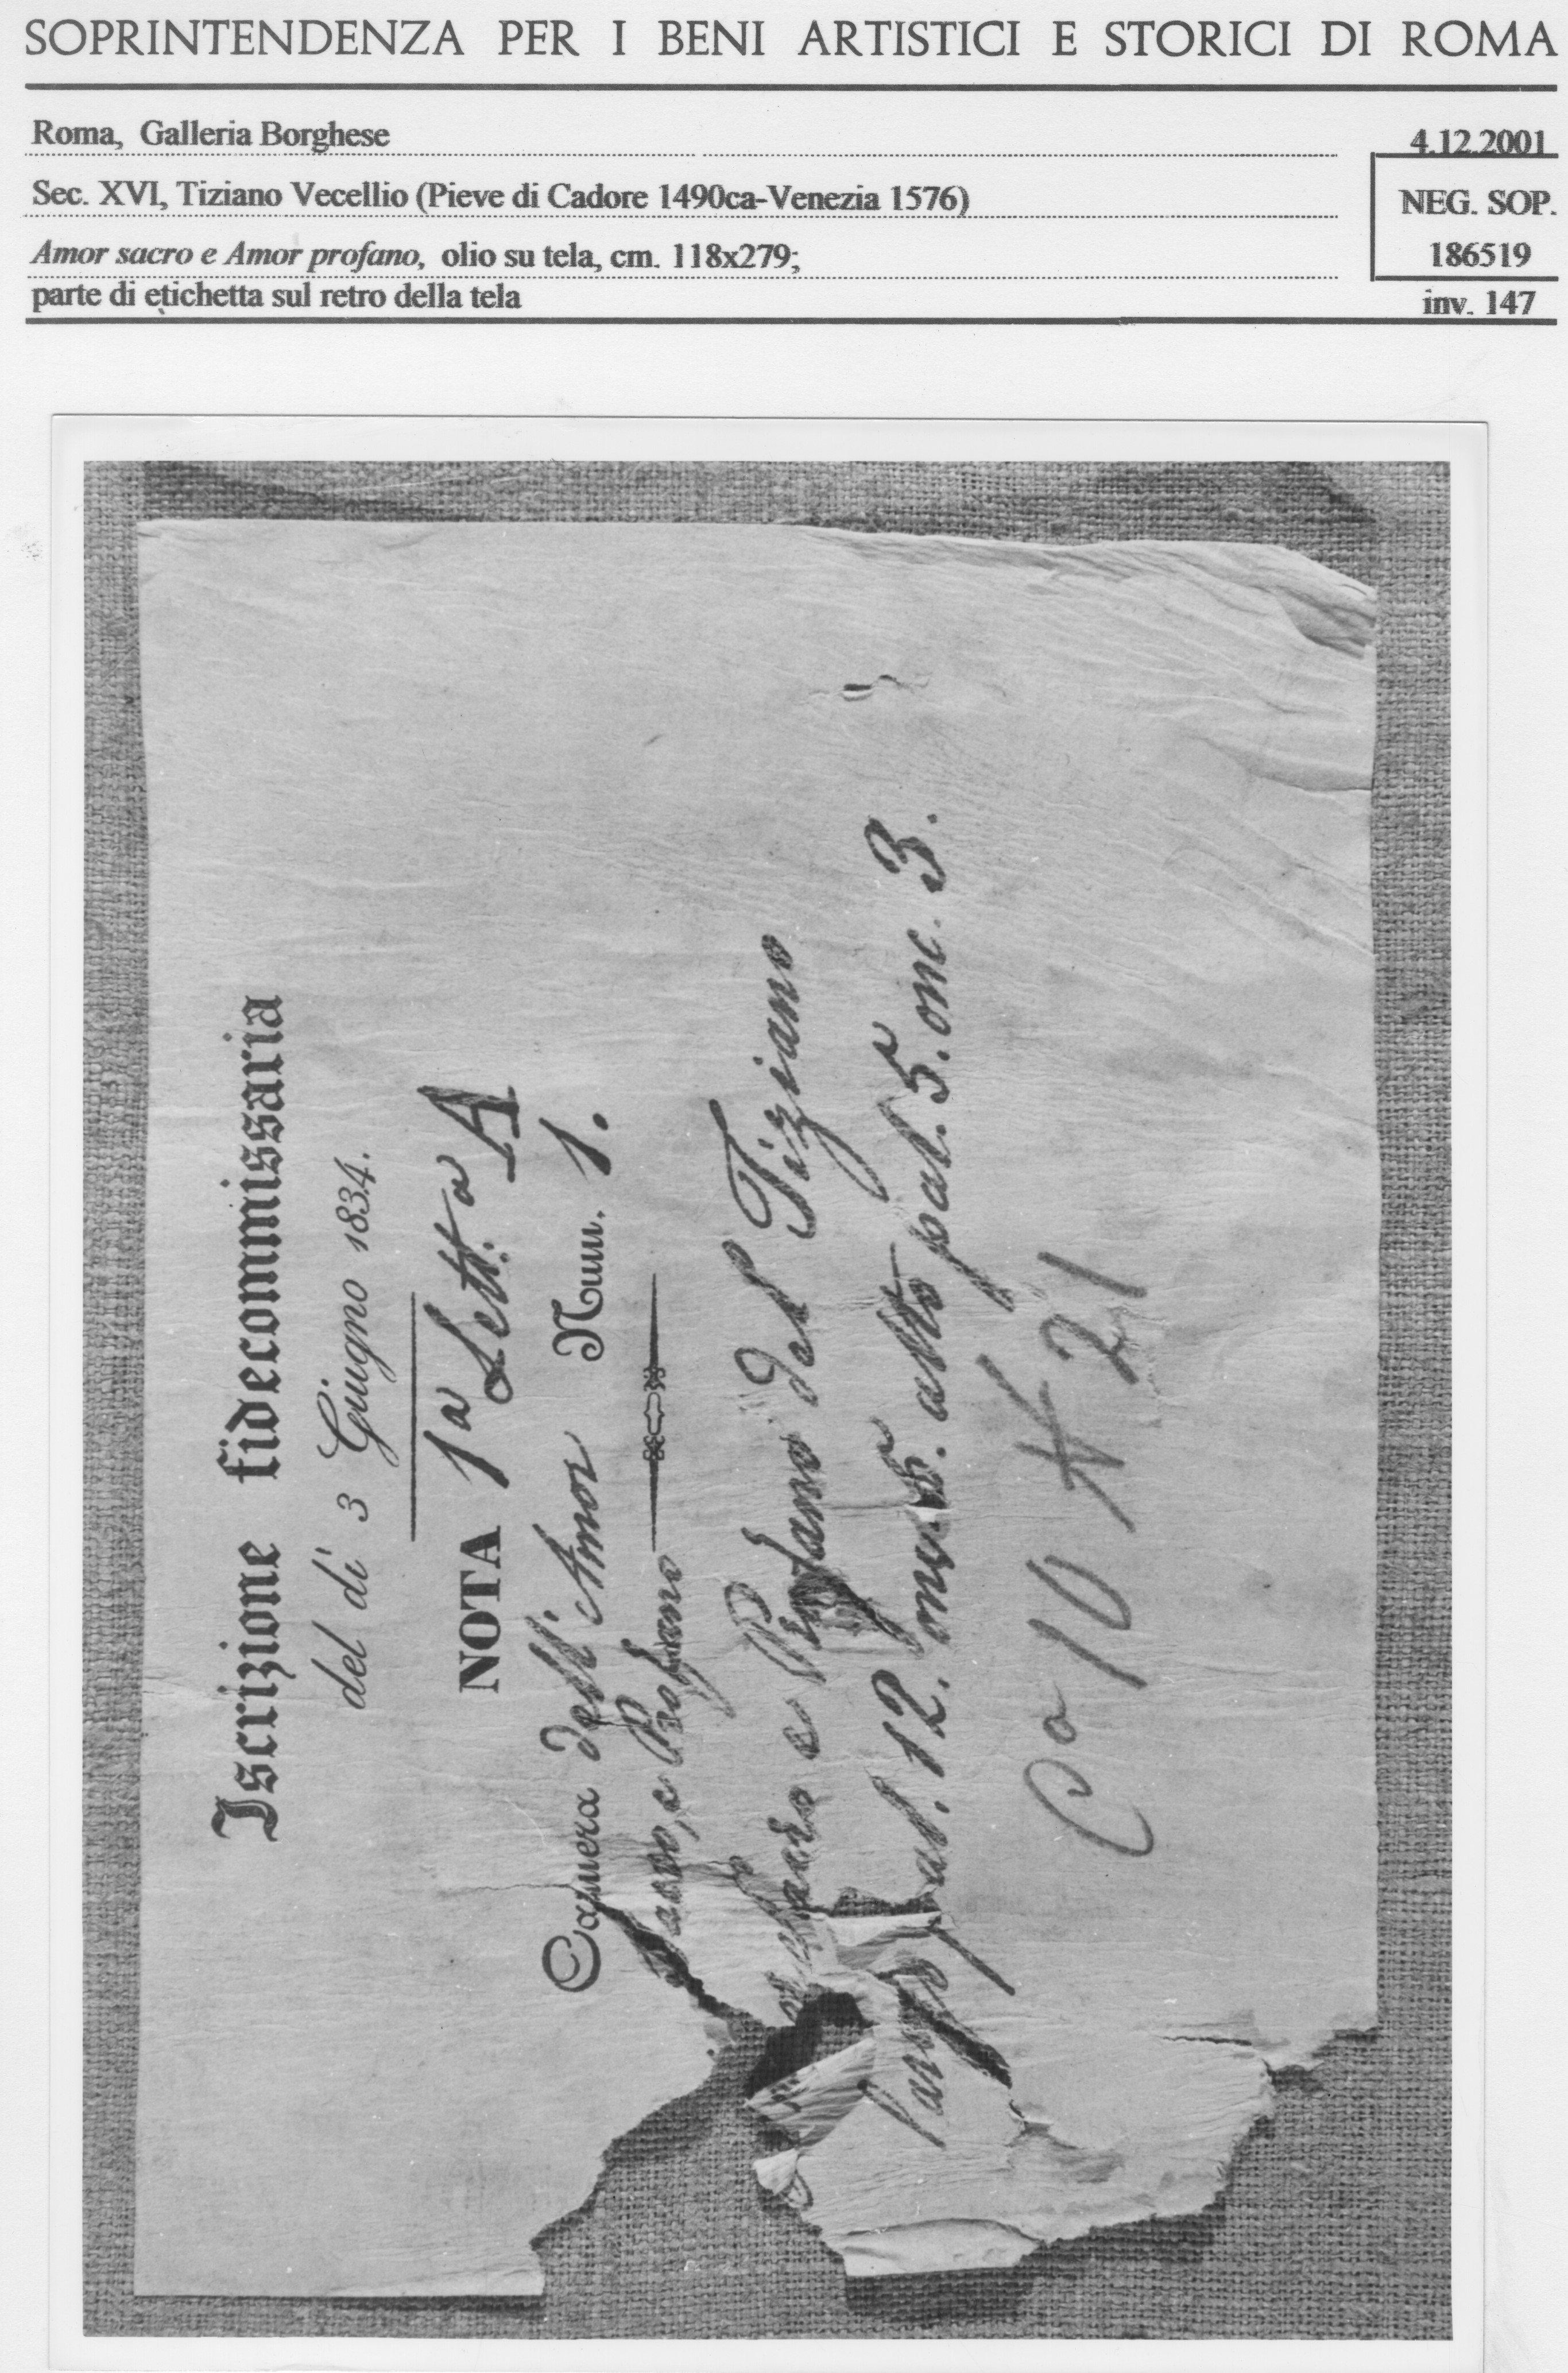 SOPRINTENDENZA PER I BENI ARTISTICI E STORICI DI ROMA
Roma, Galleria Borghese
4.12.2001
Sec. XVI, Tiziano Vecellio (Pieve di Cadore 1490ca-Venezia 1576)
NEG. SOP.
Amor sacro e Amor profano, olio su tela, cm. 118x279;
186519
parte di etichetta sul retro della tela
inv. 147
Iscrizione fidecommissaria
del dì 3 Giugno 1834.
NOTA 1a Lett.a A
Camera dell'Amor Num. 1.
Sacro, e Profano
Sacro e Profano del Tiziano
largo pal. 12. onc 5. alto pal. 5. onc. 3.